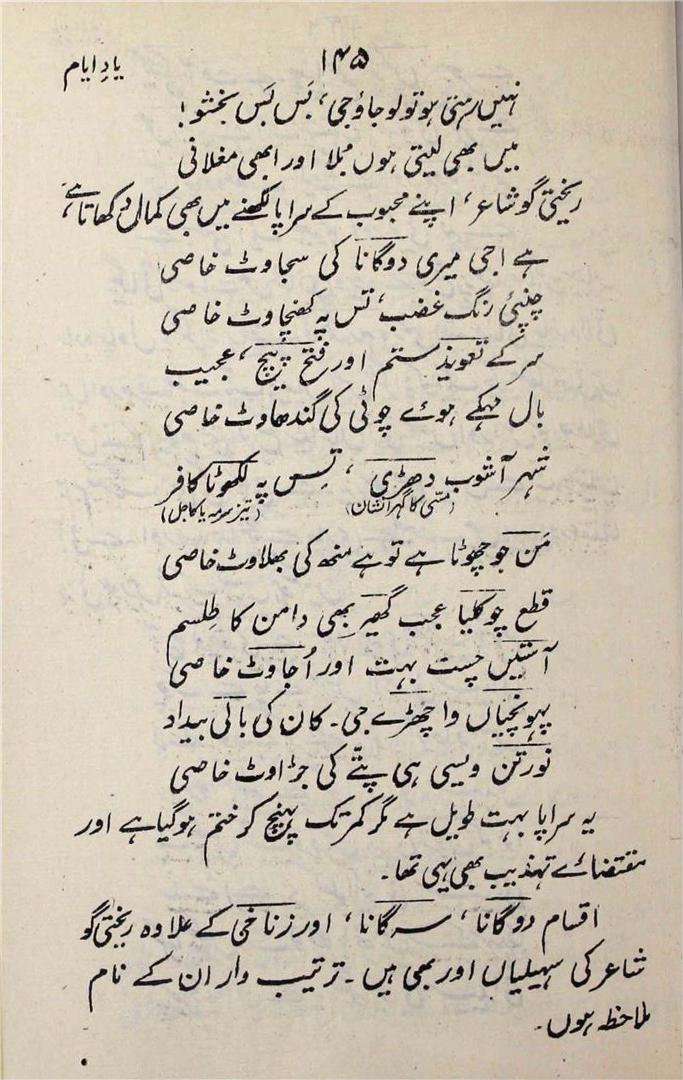 ۱۴۵
یادِ ایام
نہیں رہتی ہو تو لو جاؤ جی، بَس بَس بخشو!
میں بھی لیتی ہوں بُلا اور ابھی مغلانی
ریختی گو شاعر، اپنے محبوب کے سراپا لکھنے میں بھی کمال دکھاتا ہے،
ہے اجی میری دوگانا کی سجاوٹ خاصی
چنپئی رنگ غضب، تس پہ کھنچاوٹ خاصی
سر کے تعویذ ستم اور فتح پیچ، عجیب
بال مہکے ہوئے چوٹی کی گندھاوٹ خاصی
شہر آشوب دھڑی، تِس پہ لکھوٹا کافر
(مسّی کا گہرا نشان) (تیز سرمہ یا کاجل)
مَن جو چھوٹا ہے تو ہے منھ کی بھلاوٹ خاصی
قطع چوکلیا عجب گھیر بھی دامن کا طِلسم
آستیں چست بہت اور اُجاوٹ خاصی
پہونچیاں واچھڑے جی۔ کان کی بالی بیداد
نورتن ویسی ہی پتّے کی جڑاوٹ خاصی
یہ سراپا بہت طویل ہے مگر کمر تک پہنچ کر ختم ہو گیا ہے اور
مقتضائے تہذیب بھی یہی تھا۔
اقسام دوگانا، سہ گانا، اور زناخی کے علاوہ ریختی گو
شاعر کی سہیلیاں اور بھی ہیں۔ ترتیب وار ان کے نام
ملاحظہ ہوں۔